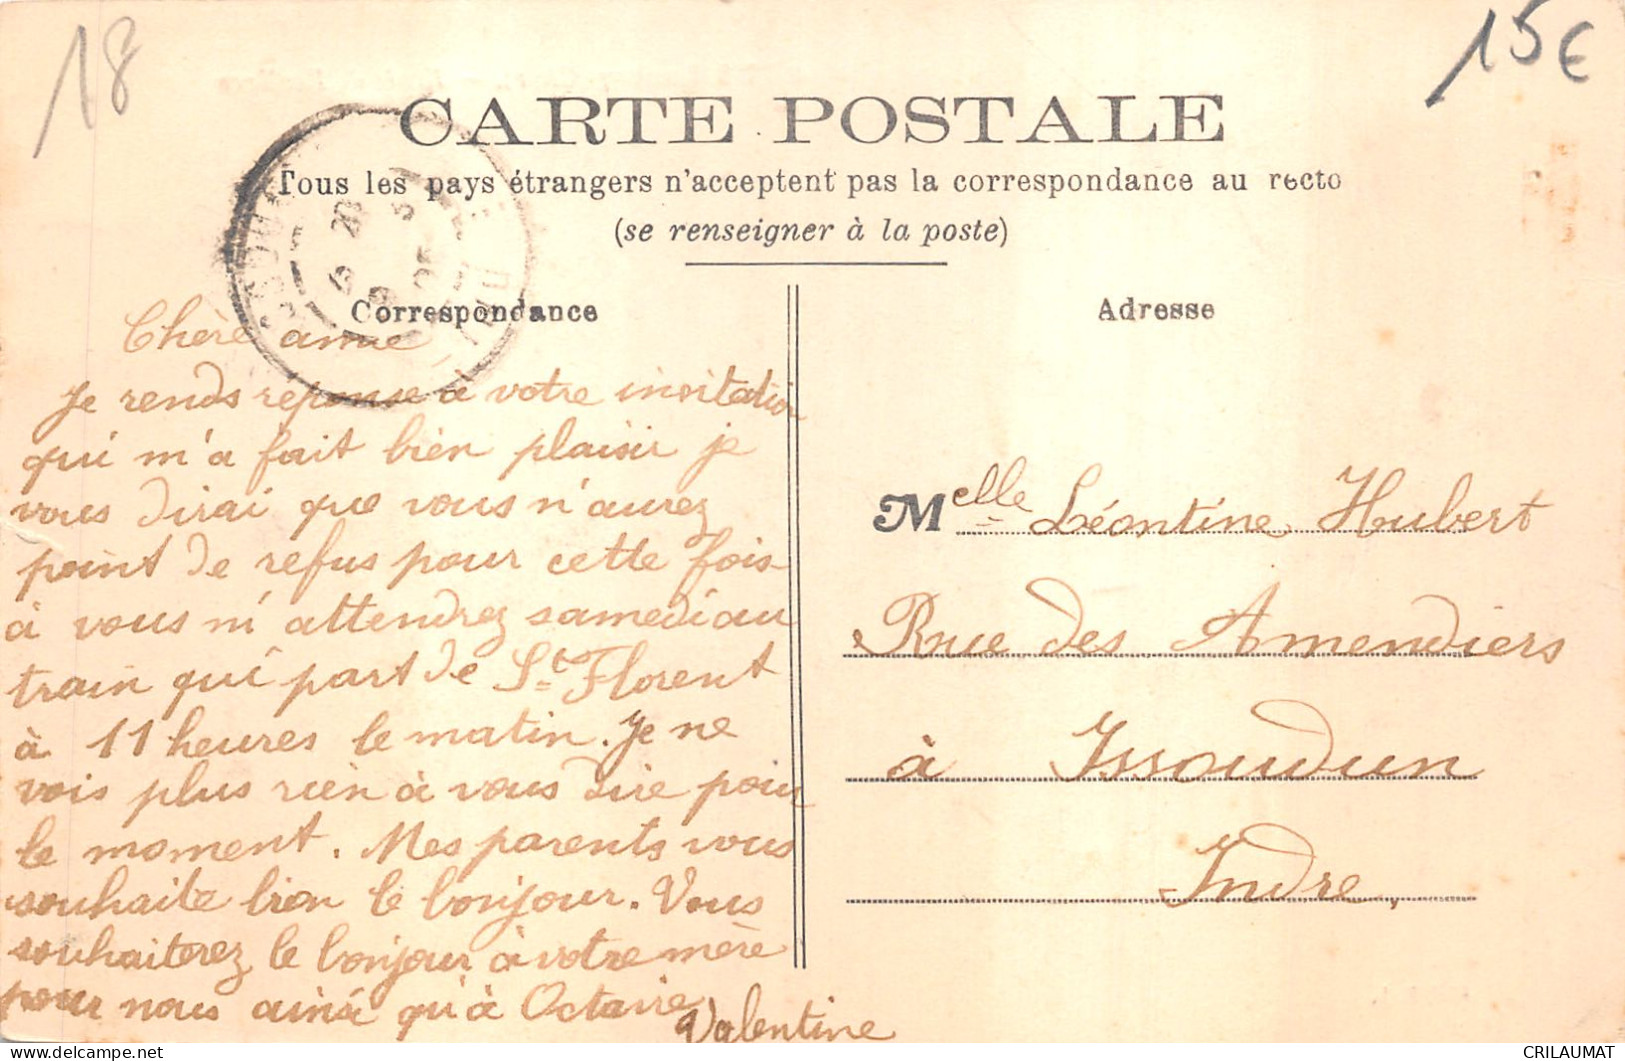 18
15€
CARTE POSTALE
Tous les pays étrangers n'acceptent pas la correspondance au recto
(se renseigner à la poste)
Correspondance
Chère amie
Je rends réponse a votre invitation
qui m'a fait bien plaisir je
vous dirai que vous n'aurez
point de refus pour cette fois
à vous m'attendrez samedi au
train qui part de St Florent
à 11 heures le matin. Je ne
vois plus rien à vous dire pour
le moment. Mes parents vous
souhaite bien le bonjour. Vous
souhaiterez le bonjour à votre mère
pour nous ainsi qu'à Octavie
Valentine
Adresse
Melle Léontine Hubert
Rue des Amendiers
à Issoudun
Indre,
CRILAUMAT